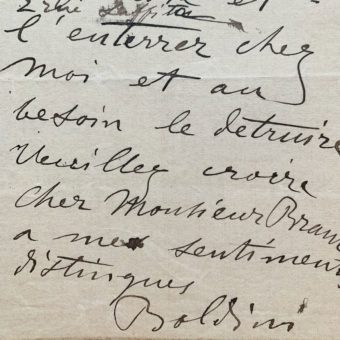 l'enterrer chez
moi et au
besoin le detruire
Veuillez croire
cher Monsieur Braun
a mes sentiments
distingues
Boldini